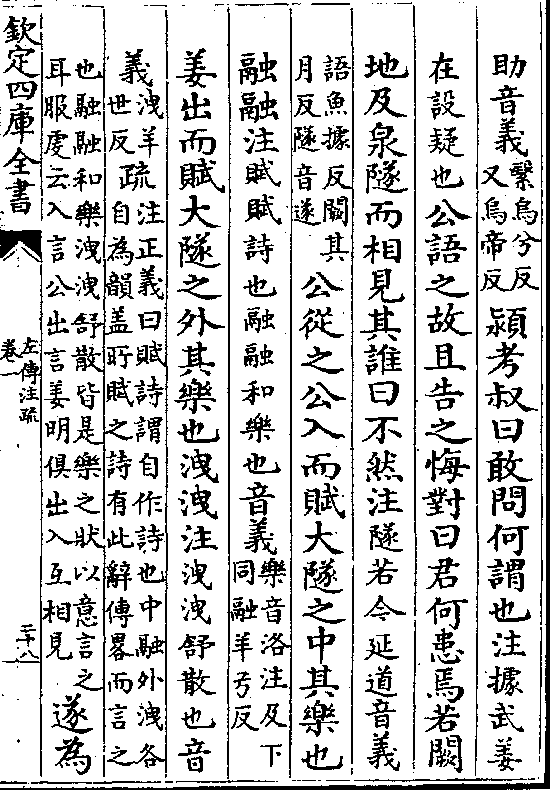 助音義繄烏兮反
又烏帝反
潁考叔曰敢問何謂也注據武姜
在設疑也公語之故且告之悔對曰君何患焉若闕
地及泉隧而相見其誰曰不然注隧若今延道音義
語魚據反闕其
月反隧音遂
公從之公入而賦大隧之中其樂也
融融注賦賦詩也融融和樂也音義
樂音洛注及下
同融羊弓反
姜出而賦大隧之外其樂也洩洩注洩洩舒散也音
義洩羊
世反
疏
注正義曰賦詩謂自作詩也中融外洩各
自為韻盖所賦之詩有此辭傳畧而言之
也融融和樂洩洩舒散皆是樂之狀以意言之
耳服虔云入言公出言姜明俱出入互相見
遂為
欽定四庫全書
左傳注疏
卷一
二十八